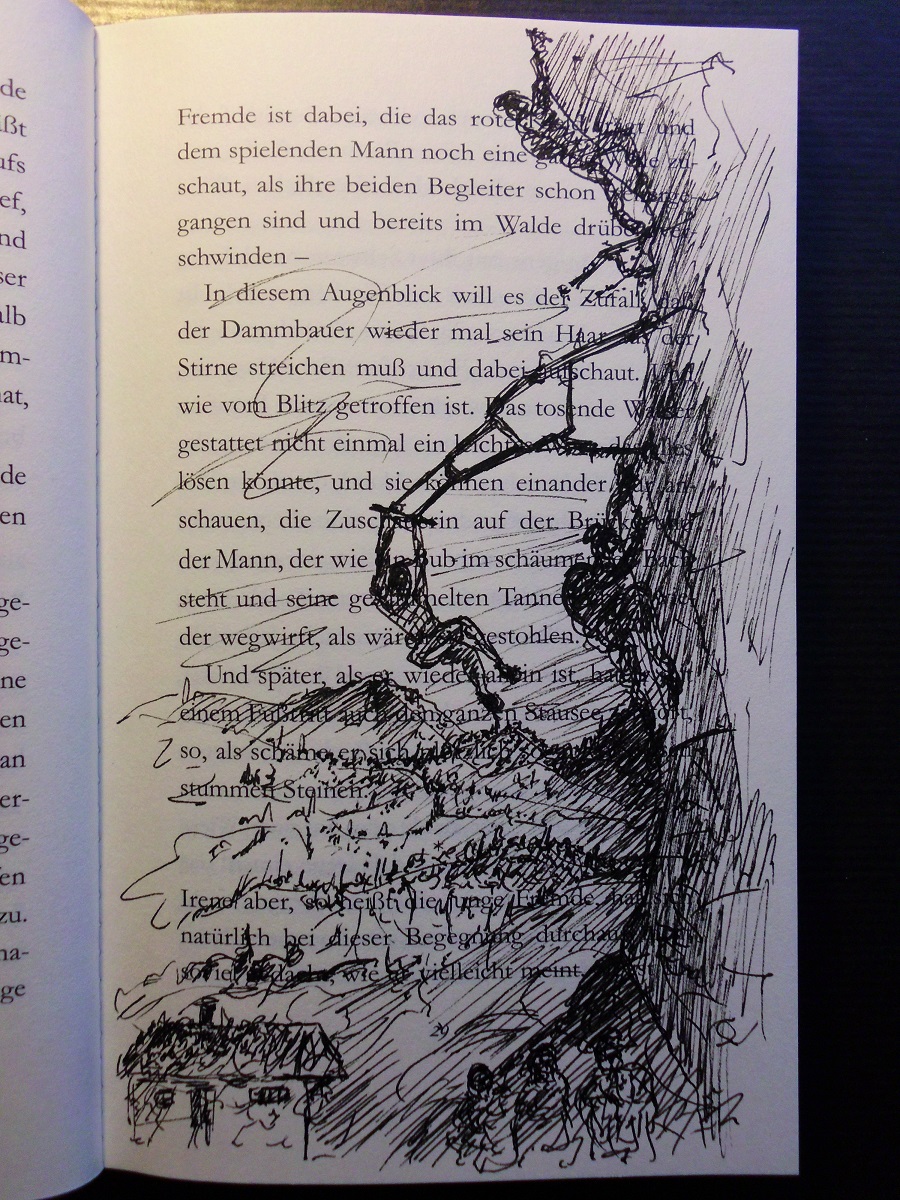 de
ßt
ufs
ef,
nd
ser
alb
m-
at,
de
en
ge-
ge-
ne
en
an
er-
ge-
en
zu.
ge
Fremde ist dabei, die das und
dem spielenden Mann noch eine zu-
schaut, als ihre beiden Begleiter schon
gangen sind und bereits im Walde drüben ver-
schwinden –
In diesem Augenblick will es der Zufall, daß
der Dammbauer wieder mal sein Haar aus der
Stirne streichen muß und dabei aufschaut. Und
wie vom Blitz getroffen ist. Das tosende Wasser
gestattet nicht einmal ein
lösen könnte, und sie können einander nur an-
schauen, die Zuschauerin auf der Brücke und
der Mann, der wie ein Bub im schäumenden Bach
steht und seine gesammelten
der wegwirft, als wären gestohlen.
Und später, als er wieder allein ist, hat
einem Fußtritt auch den ganzen Stausee
so, als schäme er sich plötzlich
stummen Steinen.
*
Irene aber, so heißt die junge Fremde, hat sich
natürlich bei dieser Begegnung durchaus
soviel gedacht, wie er vielleicht meint.
29